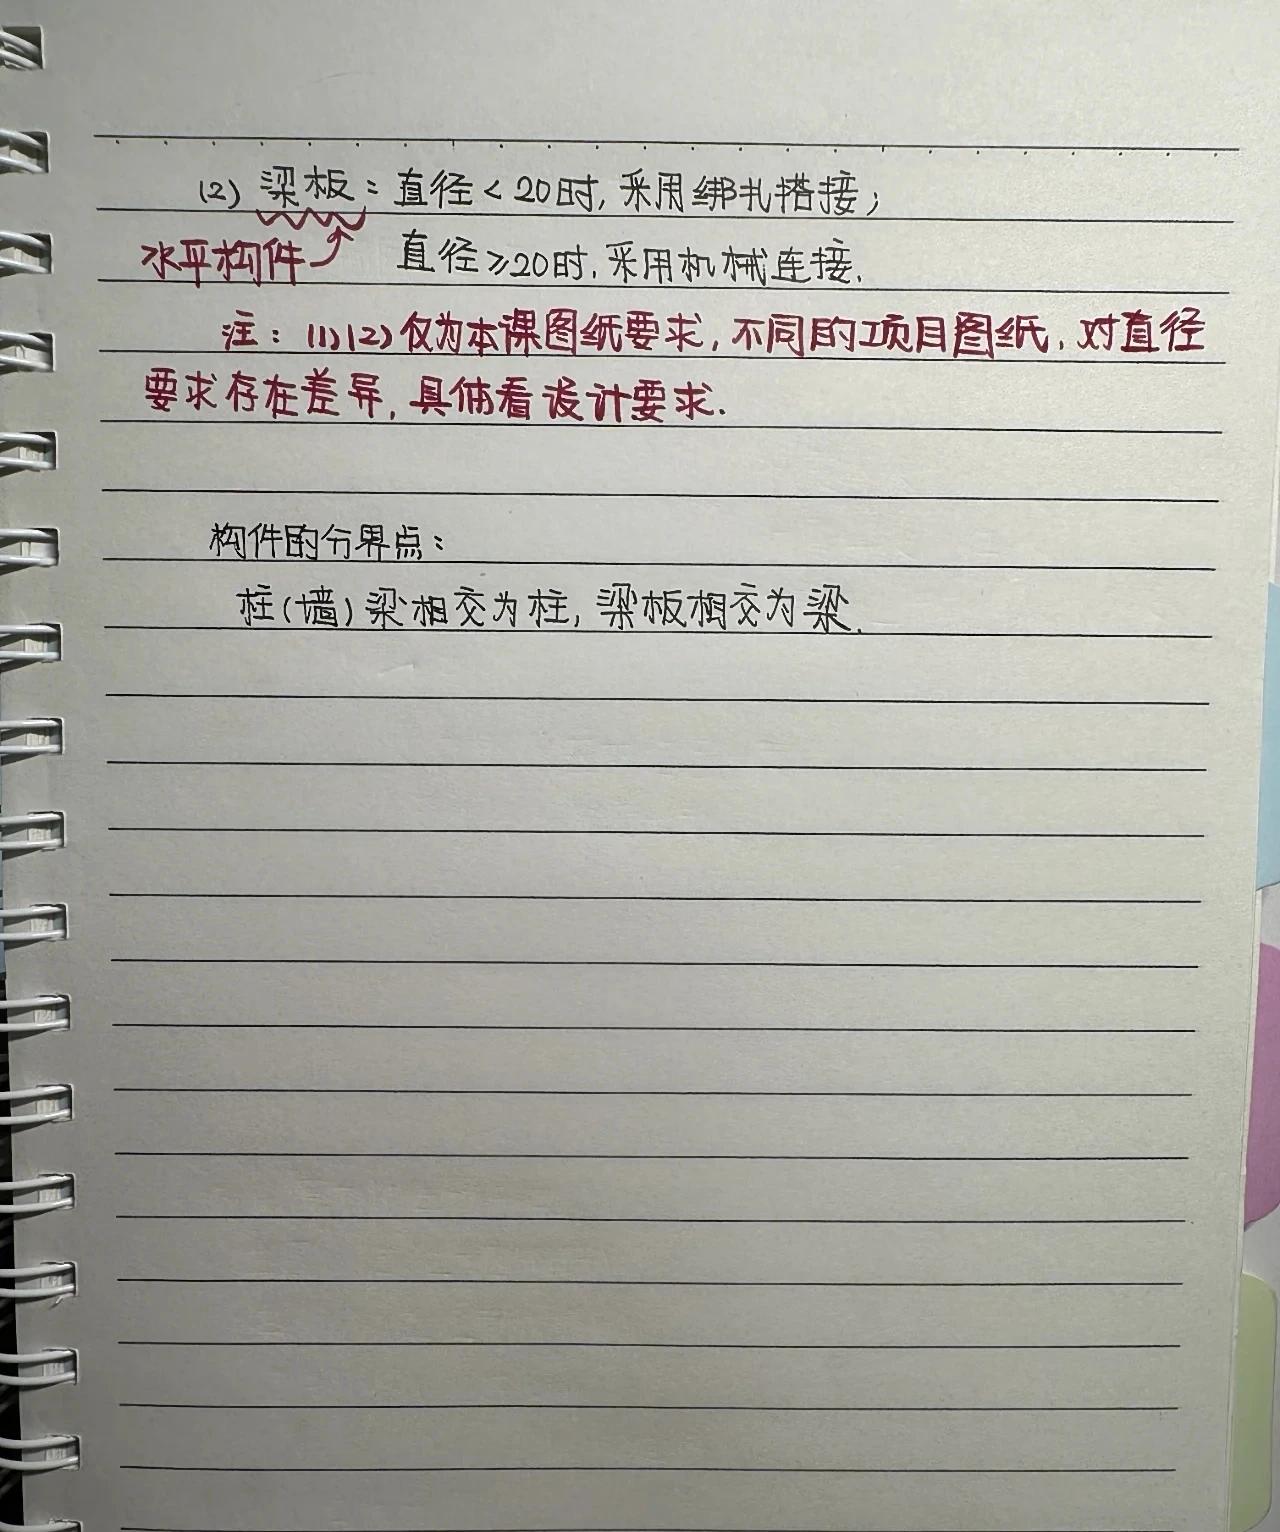 (2) 梁板：直径＜20时，采用绑扎搭接；
水平构件 直径≥20时，采用机械连接.
注：(1)(2)仅为本课图纸要求，不同的项目图纸，对直径
要求存在差异，具体看设计要求.
构件的分界点：
柱(墙)梁相交为柱，梁板相交为梁.